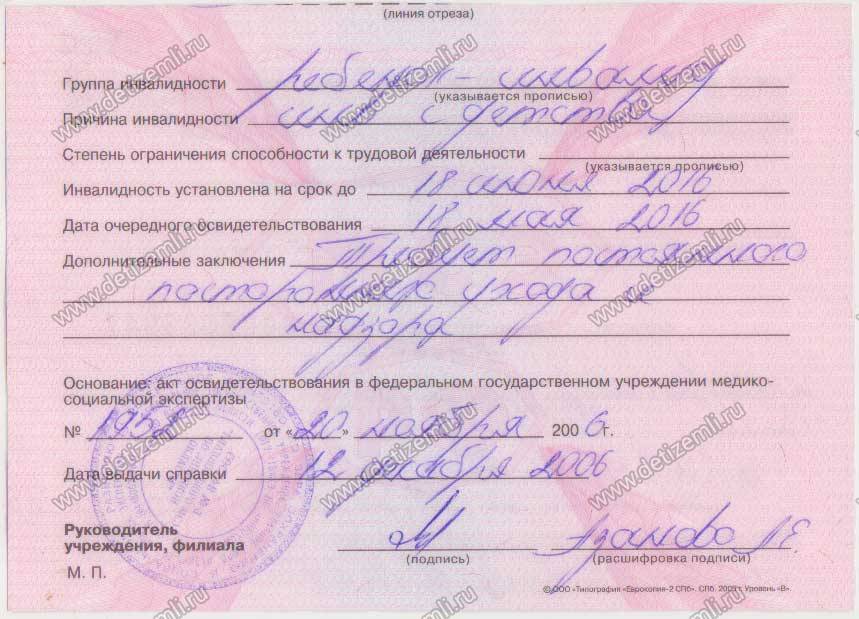 (линия отреза)
Группа инвалидности ребенок-инвалид
(указывается прописью)
Причина инвалидности инв с детства
Степень ограничения способности к трудовой деятельности
(указывается прописью)
Инвалидность установлена на срок до 18 июня 2016
Дата очередного освидетельствования 18 мая 2016
Дополнительные заключения Требует постоянного
постороннего ухода и
надзора
Основание: акт освидетельствования в федеральном государственном учреждении медико-
социальной экспертизы
№ 1958 от «20» ноября 2006 г.
Дата выдачи справки 12 2006
Руководитель
учреждения, филиала
(подпись) (расшифровка подписи)
М. П.
© ООО «Типография «Еврокопия-2 СПб». СПб. 2005 г. Уровень «В».
www.detizemli.ru